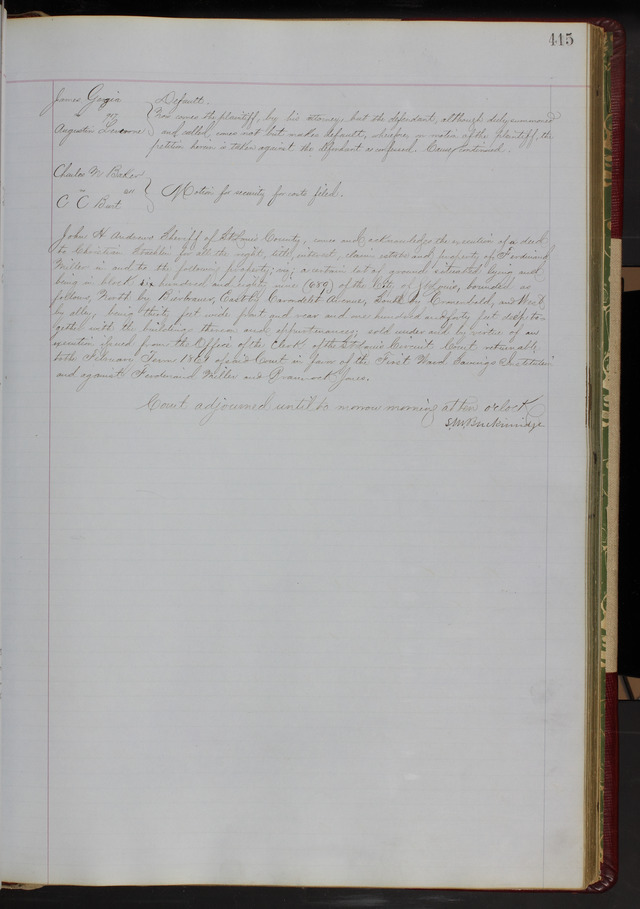 415
James Gorgia
vs
Augustin Levourne
Default.
Now comes the plaintiff, by his attorney, but the defendant, although duly summoned
and called, comes not but makes default, wherefore, on motion of the plaintiff, the
petition herein is taken against the defendant as confessed. Cause continued.
Charles M Baker
vs
C C Burt
Motion for security for costs filed.
John H Andrews Sheriff of St Louis County, comes and acknowledges the execution of a deed
to Christian for all the right, title, interest, claim estate and property of Ferdinand
Miller in and to the following property; viz; a certain lot of ground situated lying and
being in block six hundred and eighty nine (689) of the City of St Louis, bounded as
follows, North by Barbeau, East by Carondelet Avenue, South by and West
by alley, being thirty feet wide front and rear and one hundred and forty feet deep to-
gether with the buildings thereon and appurtenances; sold under and by virtue of an
execution issued from the Office of the Clerk of the St Louis Circuit Court returnable
to the February Term 1869 of said Court in favor of the First Ward Savings Institution
and against Ferdinand Miller and Jones.
Court adjourned until to morrow morning at ten o'clock
S.M. Breckinridge